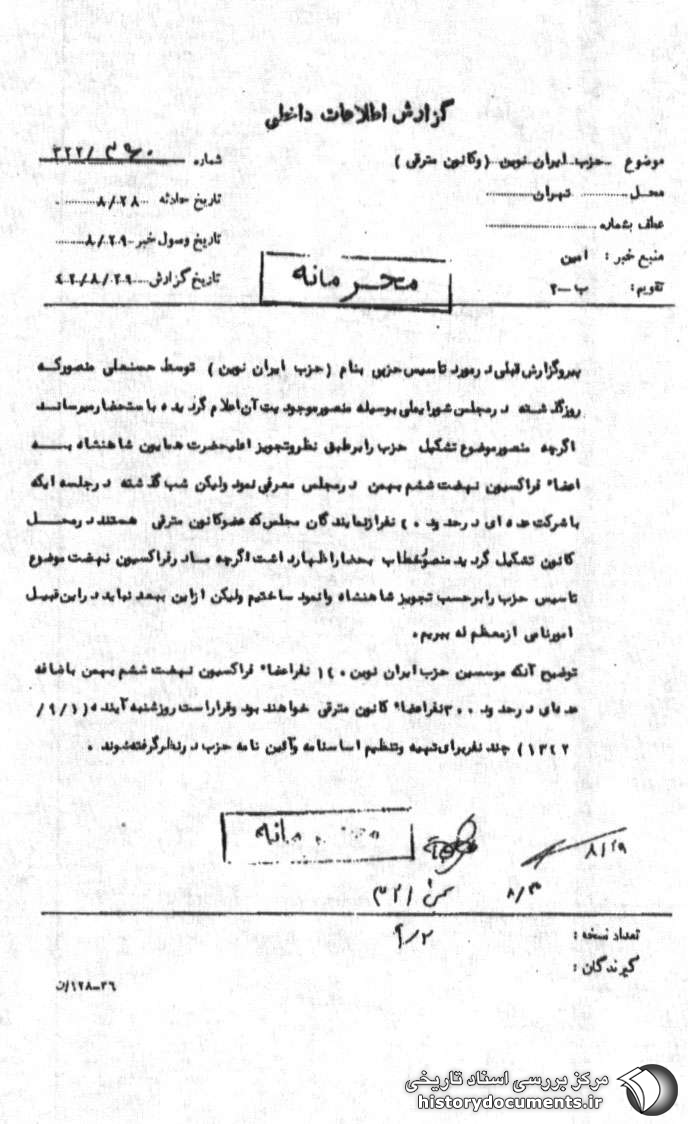 گزارش اطلاعات داخلی
موضوع حزب ایران نوین (وکانون مترقی)
شماره ۳۲۲/
محل تهران
تاریخ حادثه ۸/۲۸
عطف بشماره
تاریخ وصول خبر ۸/۲۹
منبع خبر: امین
تاریخ گزارش ۴۲/۸/۲۹
تقویم: ب-۲
محرمانه
پیروگزارش قبلی درمورد تاسیس حزبی بنام (حزب ایران نوین) توسط حسنعلی منصورکه
روزگذشته درمجلس شورایملی بوسیله منصورموجودیت آن اعلام گردیده باستحضارمیرساند
اگرچه منصورموضوع تشکیل حزب رابرطبق نظروتجویز اعلیحضرت همایون شاهنشاه بـــه
اعضاء فراکسیون نهضت ششم بهمن درمجلس معرفی نمود ولیکن شب گذشته درجلسه ایکه
باشرکت عده ای درحدود ۴۰ نفرازنمایندگان مجلس که عضوکانون مترقی هستند درمحــل
کانون تشکیل گردید منصورخطاب بحضاراظهارداشت اگرچه مادرفراکسیون نهضت موضوع
تاسیس حزب رابرحسب تجویز شاهنشاه وانمود ساختیم ولیکن ازاین ببعد نباید دراین قبیل
امورنامی ازمعظم له ببریم.
توضیح آنکه موسسین حزب ایران نوین ۱۴۰ نفراعضاء فراکسیون نهضت ششم بهمن باضافه
عده‌ای درحدود ۳۰۰ نفراعضاء کانون مترقی خواهند بود وقراراست روزشنبه آینده (۹/۱/
۱۳۴۲) چند نفربرای تهیه وتنظیم اساسنامه وآئین نامه حزب درنظرگرفته شوند.
محرمانه
۸/۲۹
۸/۳۰
۳۲۱
۹/۲
تعداد نسخه:
گیرندگان:
۳۶-۱۲۸/ن
مرکز بررسی اسناد تاریخی
historydocuments.ir